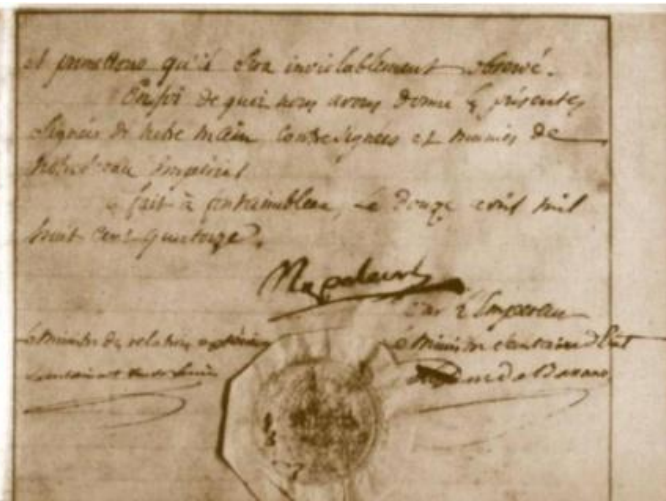 et promettons qu'il sera inviolablement observé.
En foi de quoi nous avons donné les présentes
signées de notre main contresignées et munies de
notre sceau impérial
fait à fontainebleau, le douze avril mil
huit cent quatorze.
Napoleon
Par l'Empereur
Le Ministre des relations extérieures
Le Ministre secrétaire d'Etat
Le Duc de Bassano